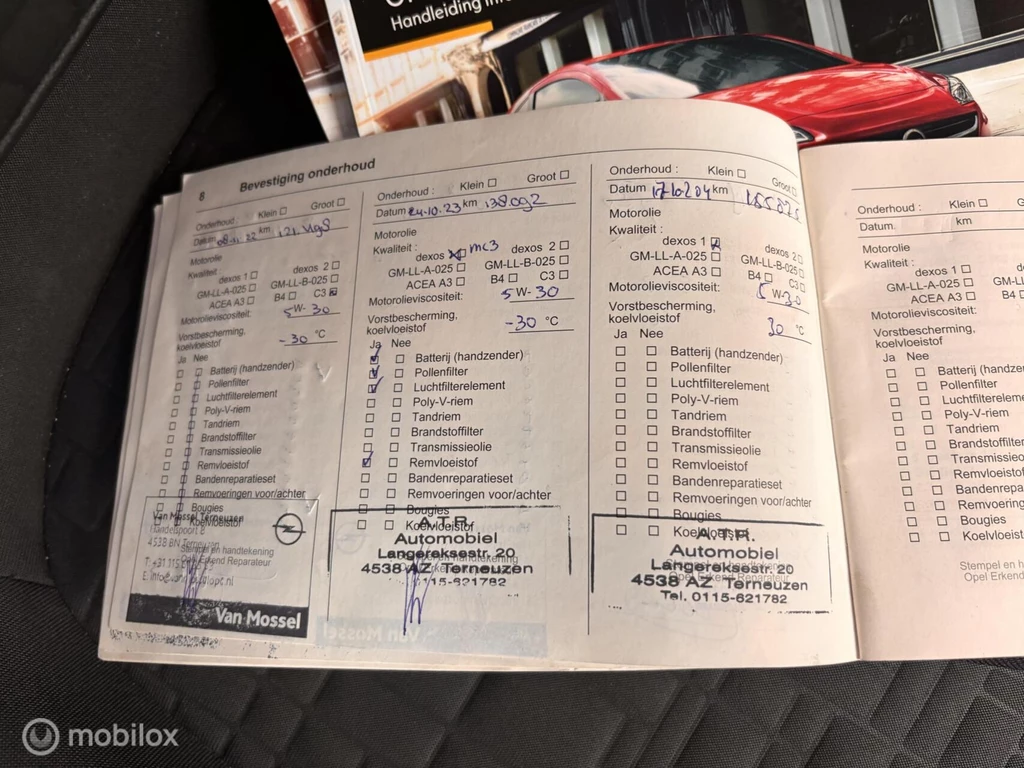 Handleiding
8 Bevestiging onderhoud
Onderhoud : Klein ☐ Groot ☐
Datum 08-11-22 km
Motorolie
Kwaliteit :
dexos 1 ☐ dexos 2 ☐
GM-LL-A-025 ☐ GM-LL-B-025 ☐
ACEA A3 ☐ B4 ☐ C3 ☒
Motorolieviscositeit: 5W-30
Vorstbescherming,
koelvloeistof -30 °C
Ja Nee
☐ ☐ Batterij (handzender)
☐ ☐ Pollenfilter
☐ ☐ Luchtfilterelement
☐ ☐ Poly-V-riem
☐ ☐ Tandriem
☐ ☐ Brandstoffilter
☐ ☐ Transmissieolie
☐ ☐ Remvloeistof
☐ ☐ Bandenreparatieset
☐ ☐ Remvoeringen voor/achter
☐ ☐ Bougies
☐ ☐ Koelvloeistof
Van Mossel Terneuzen
Handelspoort 8
4538 BN Terneuzen
Stempel en handtekening
Opel Erkend Reparateur
Van Mossel
Onderhoud : Klein ☐ Groot ☐
Datum 24.10.23 km 138092
Motorolie
Kwaliteit :
dexos ☒ mc3 dexos 2 ☐
GM-LL-A-025 ☐ GM-LL-B-025 ☐
ACEA A3 ☐ B4 ☐ C3 ☐
Motorolieviscositeit: 5W-30
Vorstbescherming,
koelvloeistof -30 °C
Ja Nee
☑ ☐ Batterij (handzender)
☑ ☐ Pollenfilter
☑ ☐ Luchtfilterelement
☐ ☐ Poly-V-riem
☐ ☐ Tandriem
☐ ☐ Brandstoffilter
☐ ☐ Transmissieolie
☑ ☐ Remvloeistof
☐ ☐ Bandenreparatieset
☐ ☐ Remvoeringen voor/achter
☐ ☐ Bougies
☐ ☐ Koelvloeistof
A.T.R.
Automobiel
Langereksestr. 20
4538 AZ Terneuzen
0115-621782
Van Mossel
Onderhoud : Klein ☐ Groot ☐
Datum km
Motorolie
Kwaliteit :
dexos 1 ☒ dexos 2 ☐
GM-LL-A-025 ☐ GM-LL-B-025 ☐
ACEA A3 ☐ B4 ☐ C3 ☐
Motorolieviscositeit: 5W-30
Vorstbescherming,
koelvloeistof 30 °C
Ja Nee
☐ ☐ Batterij (handzender)
☐ ☐ Pollenfilter
☐ ☐ Luchtfilterelement
☐ ☐ Poly-V-riem
☐ ☐ Tandriem
☐ ☐ Brandstoffilter
☐ ☐ Transmissieolie
☐ ☐ Remvloeistof
☐ ☐ Bandenreparatieset
☐ ☐ Remvoeringen voor/achter
☐ ☐ Bougies
☐ ☐ Koelvloeistof
A.T.R.
Automobiel
Langereksestr. 20
Opel Erkend Reparateur
4538 AZ Terneuzen
Tel. 0115-621782
Onderhoud : Klein ☐ G
Datum. km
Motorolie
Kwaliteit :
dexos 1 ☐
GM-LL-A-025 ☐ GM-LL
ACEA A3 ☐ B4
Motorolieviscositeit:
Vorstbescherming,
koelvloeistof
Ja Nee
☐ ☐ Batterij (handze
☐ ☐ Pollenfilter
☐ ☐ Luchtfiltereleme
☐ ☐ Poly-V-riem
☐ ☐ Tandriem
☐ ☐ Brandstoffilter
☐ ☐ Transmissieo
☐ ☐ Remvloeistof
☐ ☐ Bandenrepa
☐ ☐ Remvoering
☐ ☐ Bougies
☐ ☐ Koelvloeist
Stempel en ha
Opel Erkend
mobilox